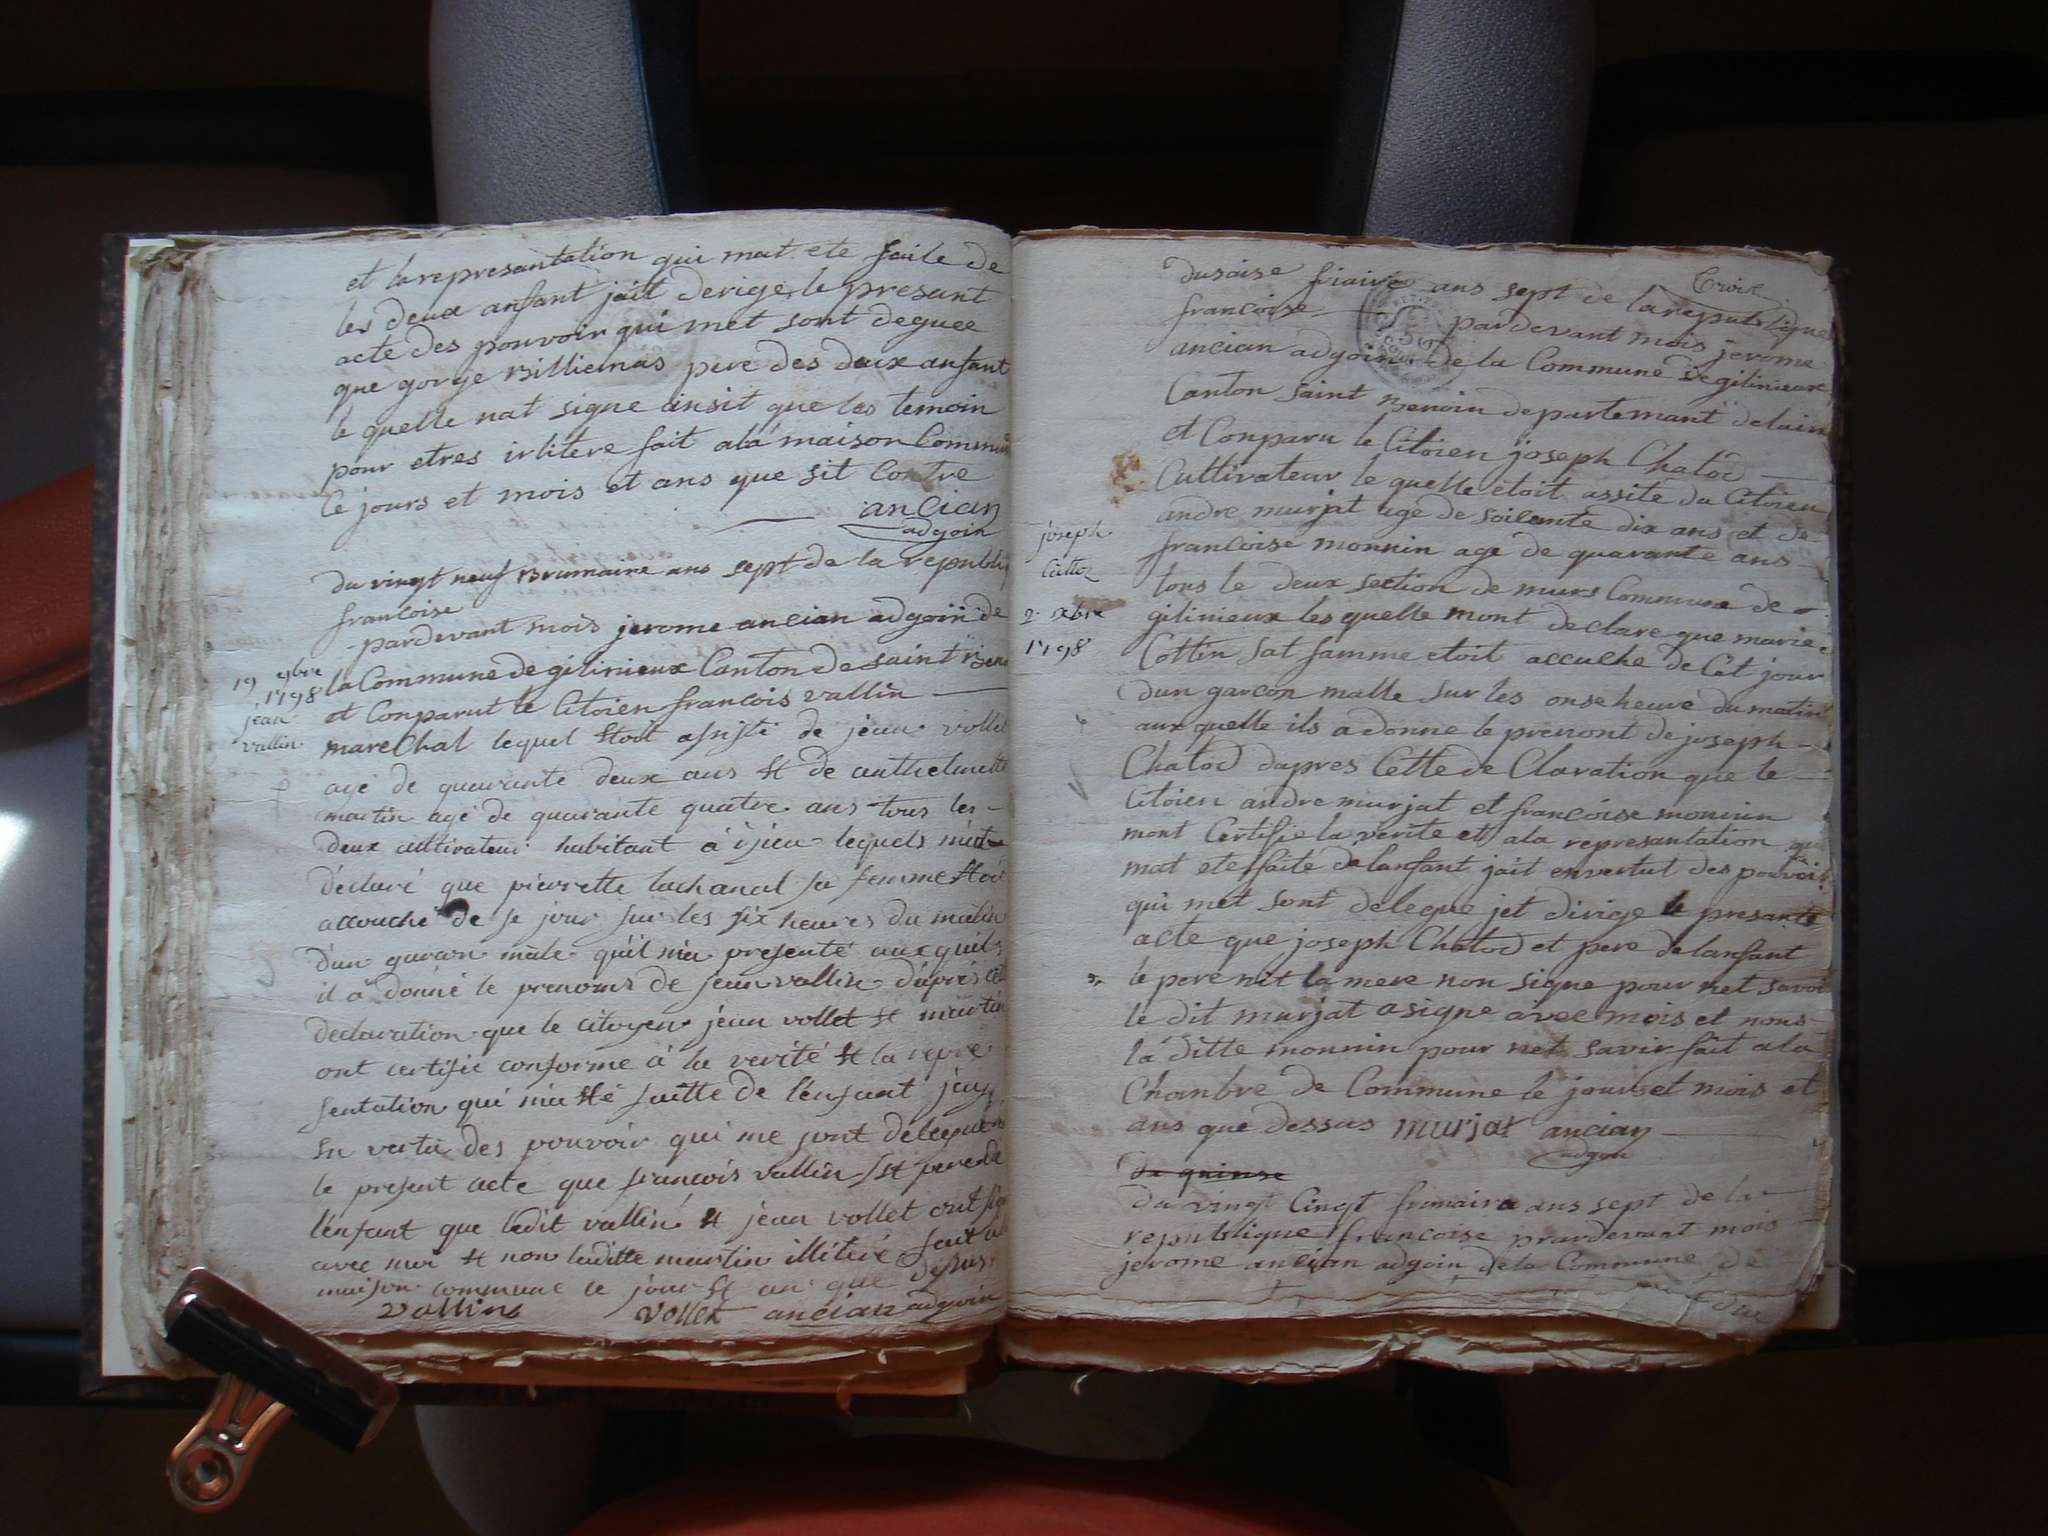 et la represantation qui mat ete faite de
les deux anfant jait derige le presant
acte des pouvoir qui met sont deguee
que gorge Billiemas pere des deux anfant
le quelle nat signe ainsit que les temoin
pour etres irlitere fait ala maison Commun
le jours et mois et ans que sit contre
ancian
adgoin
du vingt neuf Brumaire ans sept de la republi
francoise
pardevant mois jerome ancian adgoin de
la Commune de gilinieux Canton de saint Ben
et Conparut le Citoien francois vallin
19 9bre
1798
jean
vallin
marechal lequel etoit assisté de jean vollet
agé de quarante deux ans et de anthelmette
martin agé de quarante quatre ans tous les
deux cultivateur habitant à ijieu lequels m'ont
déclaré que pierrette lachanal sa femme etoit
accouché de se jour sur les six heures du matin
d'un garcon mâle qu'il m'a presenté aux quils
il a donné le prenoms de jean vallin d'après
declaration que le citoyen jean vollet et martin
ont certifié conforme à la verité et la repre
sentation qui m'a été faitte de l'enfant jay
en vertu des pouvoir qui me sont delegue
le present acte que francois vallin est pere de
l'enfant que ledit vallin et jean vollet ont sig
avec moi et non laditte martin illiteré fait a
maison commune ce jour et an que dessus
vallin vollet ancian adgoin
Troise
du saise friaire ans sept de la republique
francoise pardevant mois jerome
ancian adgoin de la Commune de gilinieux
Canton saint Benoin departemant delain
et Conparu le Citoien joseph Chatod
Cultivateur le quelle etoit assite du Citoien
andre murjat age de soilante dix ans et de
francoise monnin age de quarante ans
joseph
2 xbre
1798
tous le deux section de murs Commune de
gilinieux les quelle mont declare que marie
Cottin sat famme etoit accuche de Cet jour
dun garcon malle sur les onse heure du matin
aux quelle ils a donne le prenont de joseph
Chatod dapres Cette de Claration que le
Citoien andre murjat et francoise monnin
mont Certifie la verite et ala represantation qui
mat ete faite de lanfant jait envertut des pouvoir
qui met sont deleque jet dirige le presante
acte que joseph Chatod et pere de lanfant
le pere nit la mere non signe pour net savoir
le dit murjat a signe avec mois et nons
la ditte monnin pour net savir fait ala
Chanbre de Commune le jour et mois et
ans que dessus murjat ancian
adgoin
du quinse
du vingt Cingt frimaire ans sept de la
republique francoise prardevant mois
jerome ancian adgoin de la Commune de